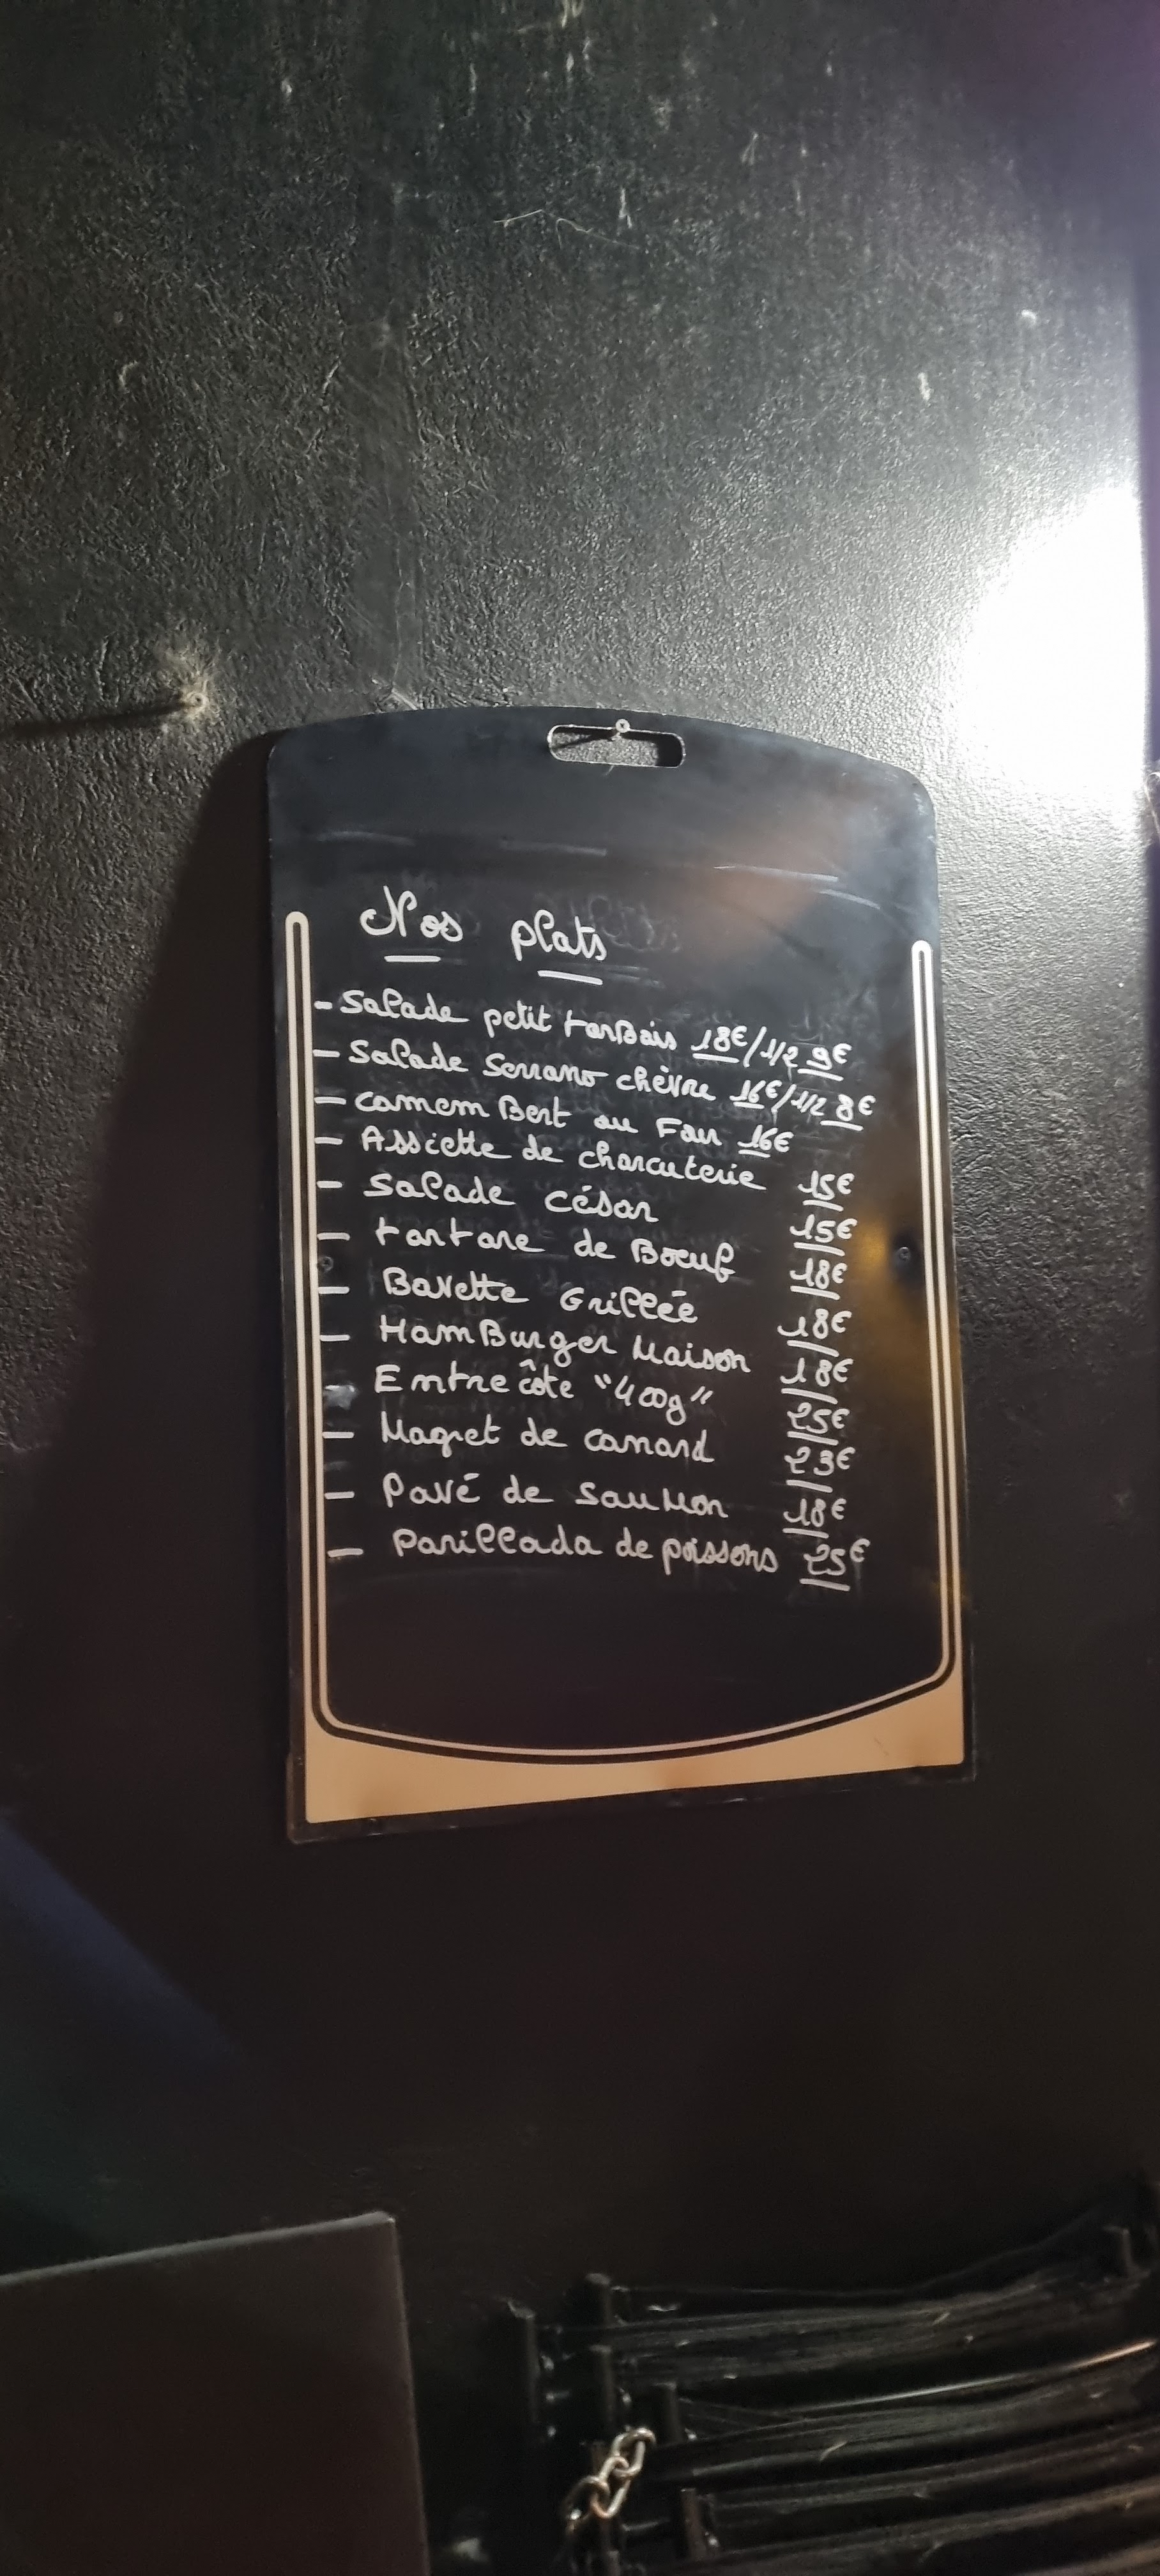 Nos plats
- Salade petit tarBais 18€/1/2 9€
- Salade Serrano chèvre 16€/1/2 8€
- camemBert au Four 16€
- Assiette de charcuterie 15€
- Salade César 15€
- tartare de Boeuf 18€
- Bavette Grillée 18€
- HamBurger Maison 18€
- Entrecôte "400g" 25€
- Magret de canard 23€
- Pavé de sauMon 18€
- Parillada de poissons 25€